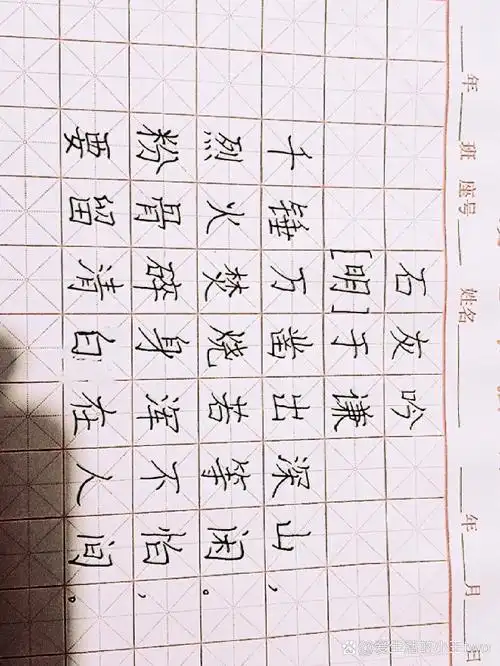 年 班 座号 姓名 年 月 日
石友吟
[明]于谦
千锤万凿出深山,
烈火焚烧若等闲。
粉骨碎身浑不怕,
要留清白在人间。